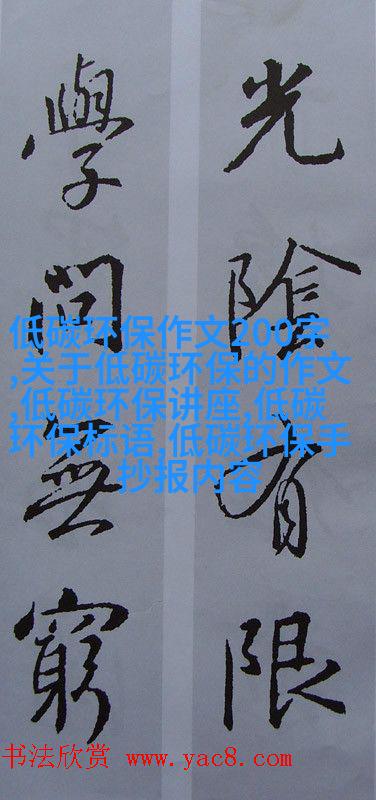 光陰有限
學問無窮
低碳环保作文200字
,关于低碳环保的作文
,低碳环保讲座,低碳
环保标语,低碳环保手
抄报内容
书法欣赏 www.yac8.com